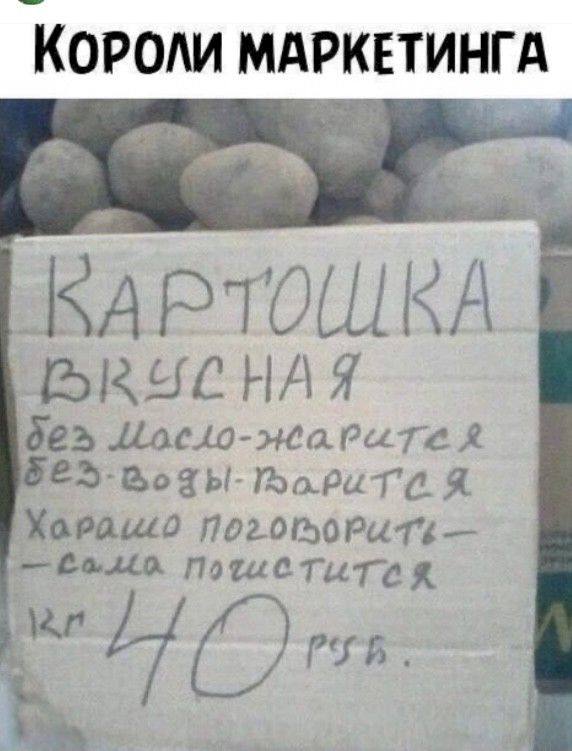 Короли маркетинга
КАРТОШКА
ВКУСНАЯ
без Масло-жарится
без-воды-варится
Харашо поговорить-
-сама почистится
кг 40 руб.